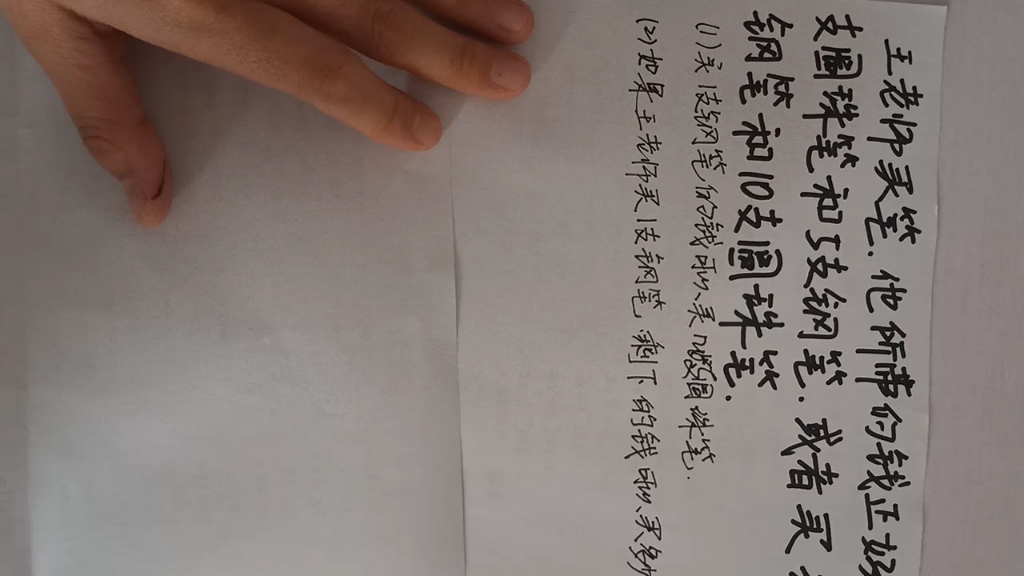 王老师买笔.他所带的钱正好
支圆珠笔和5支钢笔.或者买
钢笔和10支圆珠笔.
(1)买1支钢笔的钱可以买几支圆珠笔.
(2)如果王老师买1支钢笔.剩下的钱可以买多少